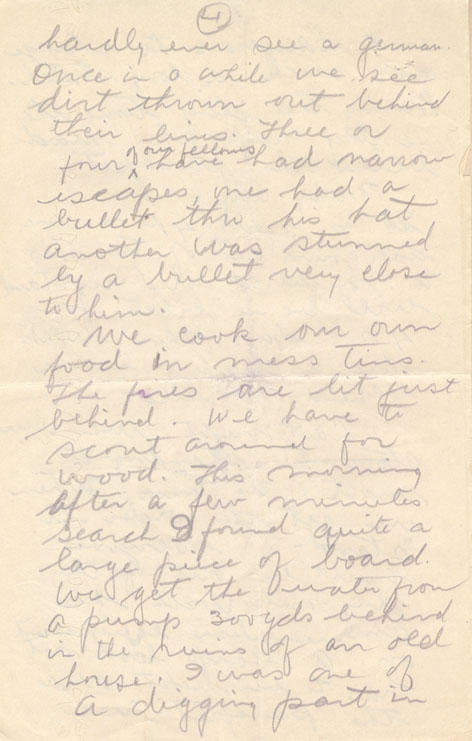 4
hardly ever see a german.
Once in a while we see
dirt thrown out behind
their lines. Three or
four of our fellows have had narrow
escapes, one had a
bullet thru his hat
another was stunned
by a bullet very close
to him.
We cook our own
food in mess tins.
The fires are lit just
behind. We have to
scout around for
wood. This morning
after a few minutes
search I found quite a
large piece of board.
We get the water from
a pump 300yds behind
in the ruins of an old
house. I was one of
a digging part in